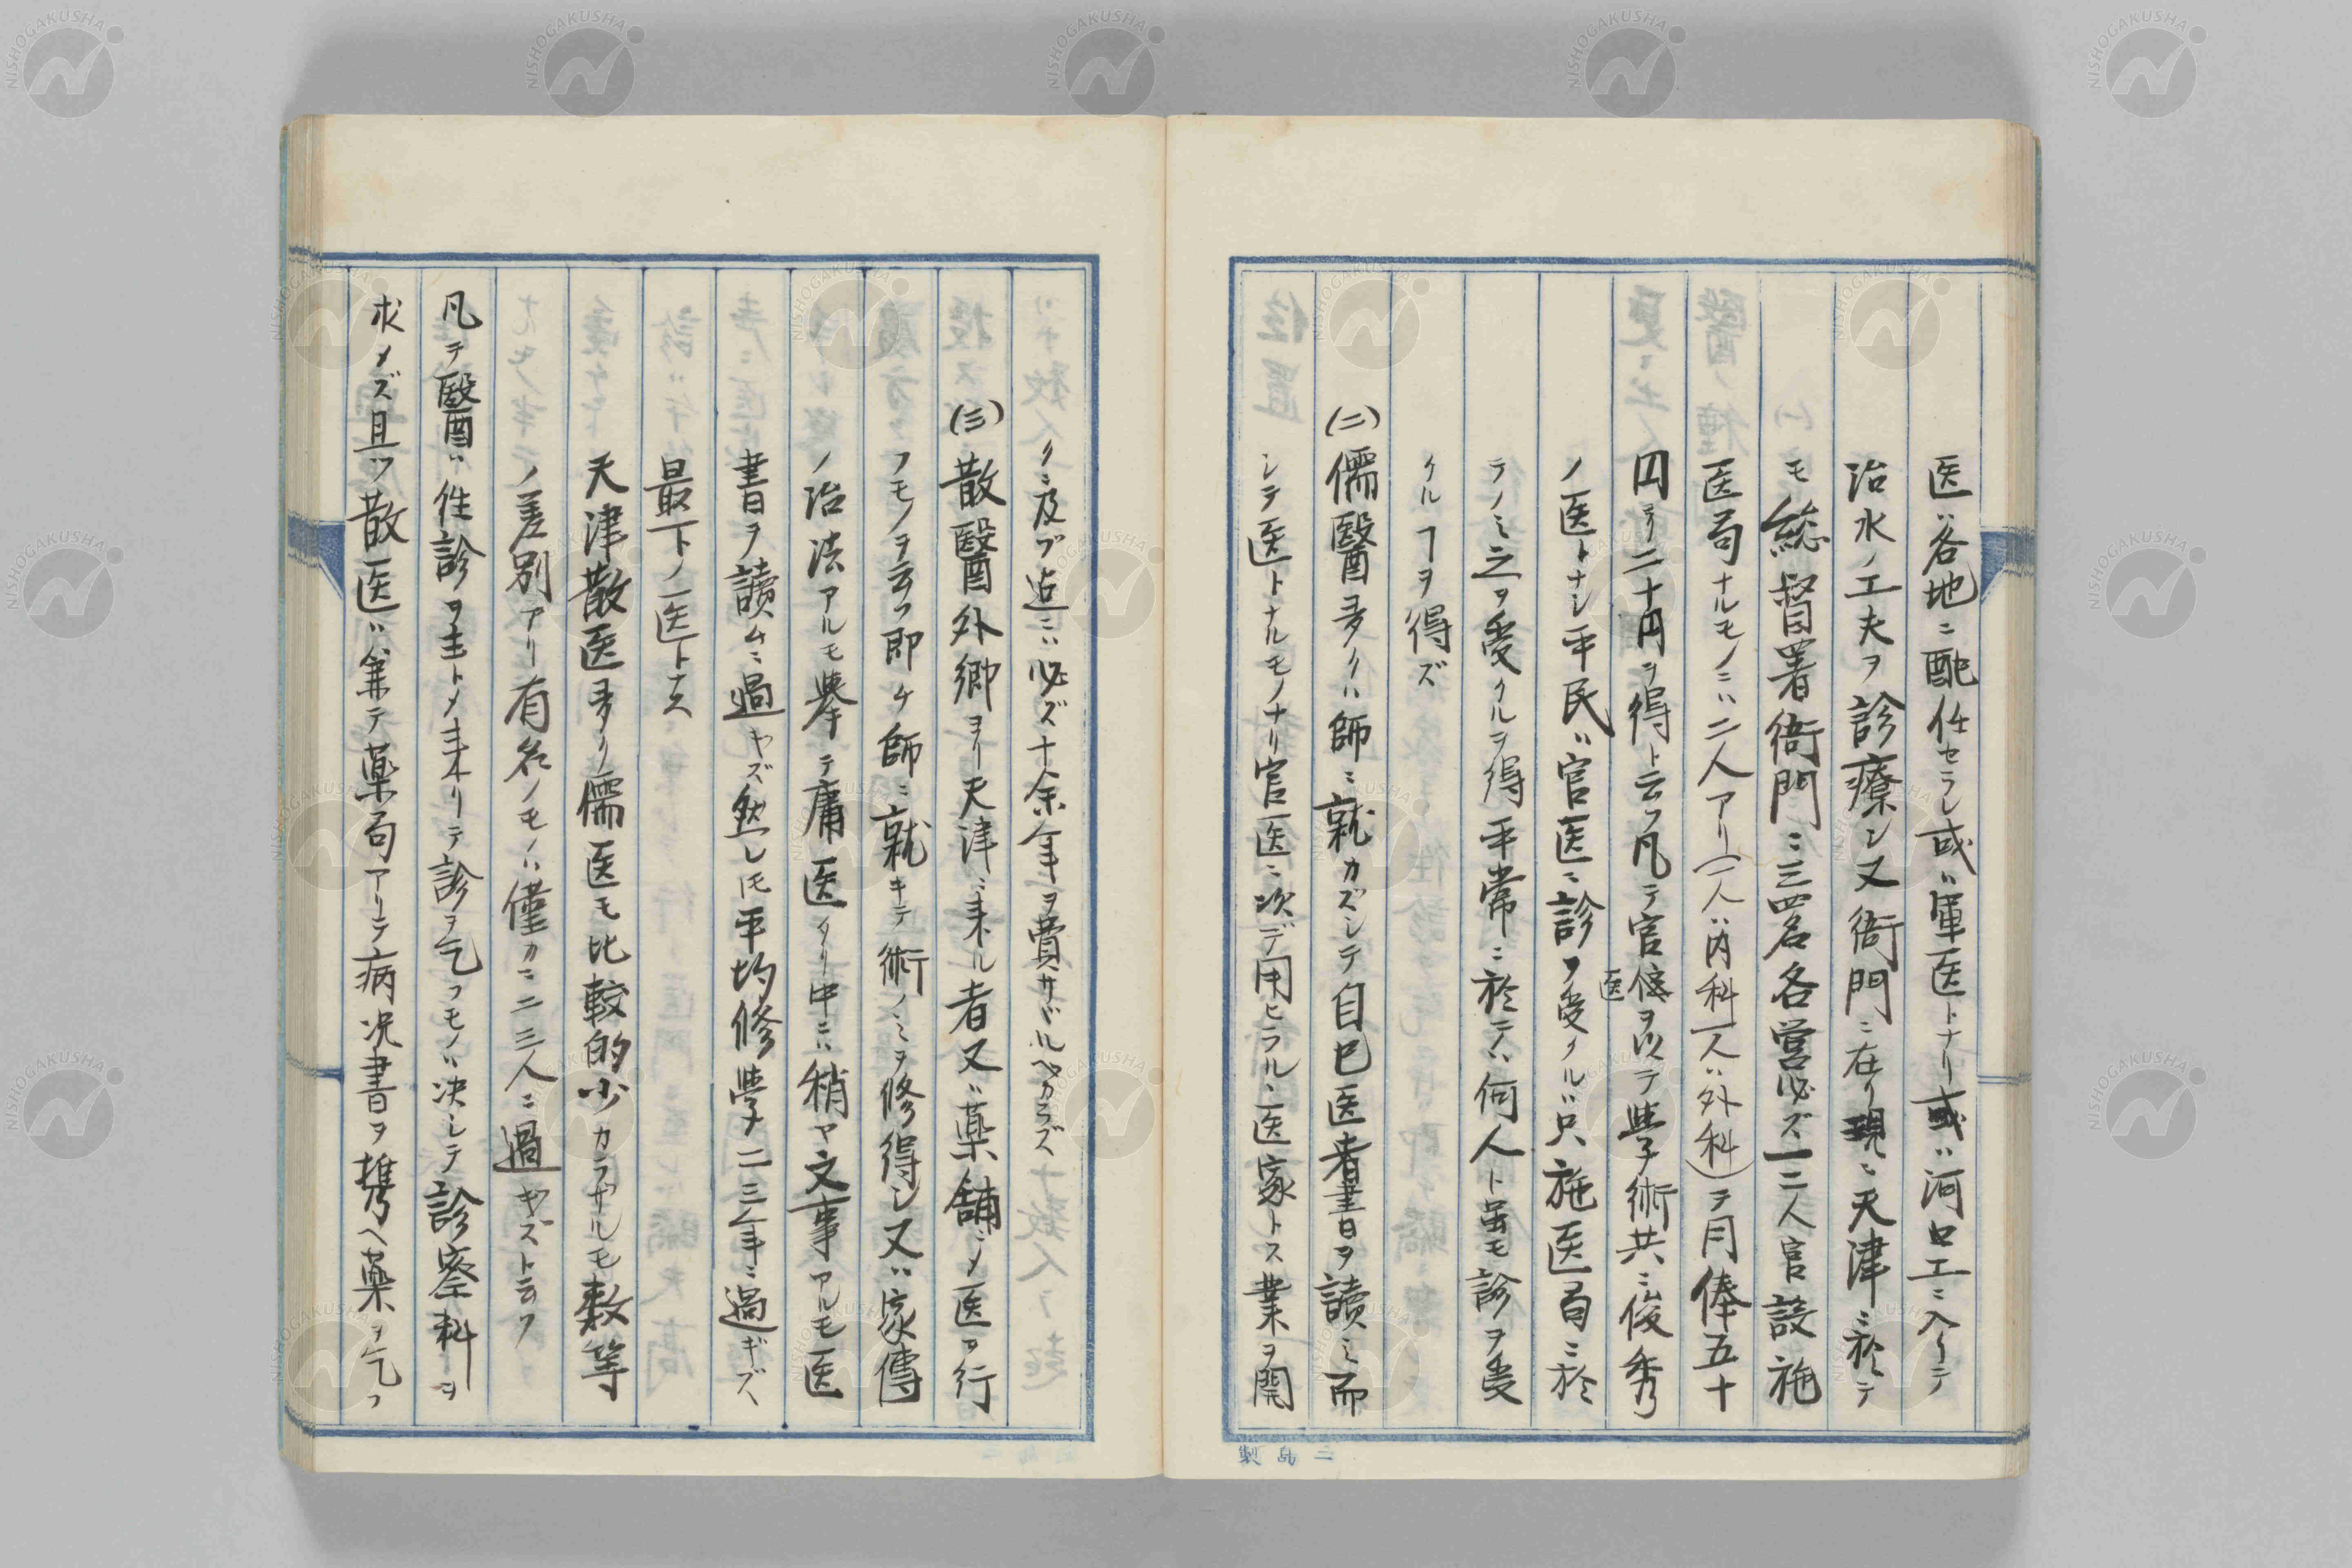 医ハ各地ニ配任セラレ或ハ軍医トナリ或ハ河口工ニ入リテ
治水ノ工夫ヲ診療シ又衙門ニ在リ現ニ天津ニ於テ
モ総督署衙門ニ三四名各営必ズ一二人官設施
医局ナルモノニハ二人アリ(一人ハ内科一人ハ外科)ヲ月俸五十
円乃二十円ヲ得ト云フ凡テ官医ヲ以テ學術共ニ俊秀
ノ医トナシ平民ハ官医ニ診ヲ受クルハ只施医局ニ於
テノミ之ヲ受クルヲ得平常ニ於テハ何人ト雖モ診ヲ受
クルヿヲ得ズ
(二)儒醫多クハ師ニ就カズシテ自己医者書ヲ讀ミ而
シテ医トナルモノナリ官医ニ次デ用ヒラル、医家トス業ヲ開
クニ及ブ迄ニハ必ズ十余年ヲ費サヾルベカラズ
(三)散醫外郷ヨリ天津ニ来ル者又ハ薬舗ニメ医ヲ行
フモノヲ云フ即チ師ニ就キテ術ノミヲ修得シ又ハ家傳
ノ治法アルモ挙テ庸医タリ中ニハ稍ヤ文事アルモ医
書ヲ讀ムニ過ギズ然レ𪜈平均修學二三年ニ過ギズ、
最下ノ医トナス
天津散医多ク儒医モ比較的少カラザルモ数等
ノ差別アリ有名ノモノハ僅カニ二三人ニ過ギズト云フ
凡テ醫ハ往診ヲ主トメ来リテ診ヲ乞フモノハ决シテ診察料ヲ
求メズ且ツ散医ハ兼テ薬局アリテ病况書ヲ携ヘ薬ヲ乞フ
製島三
NISHOGAKUSHA